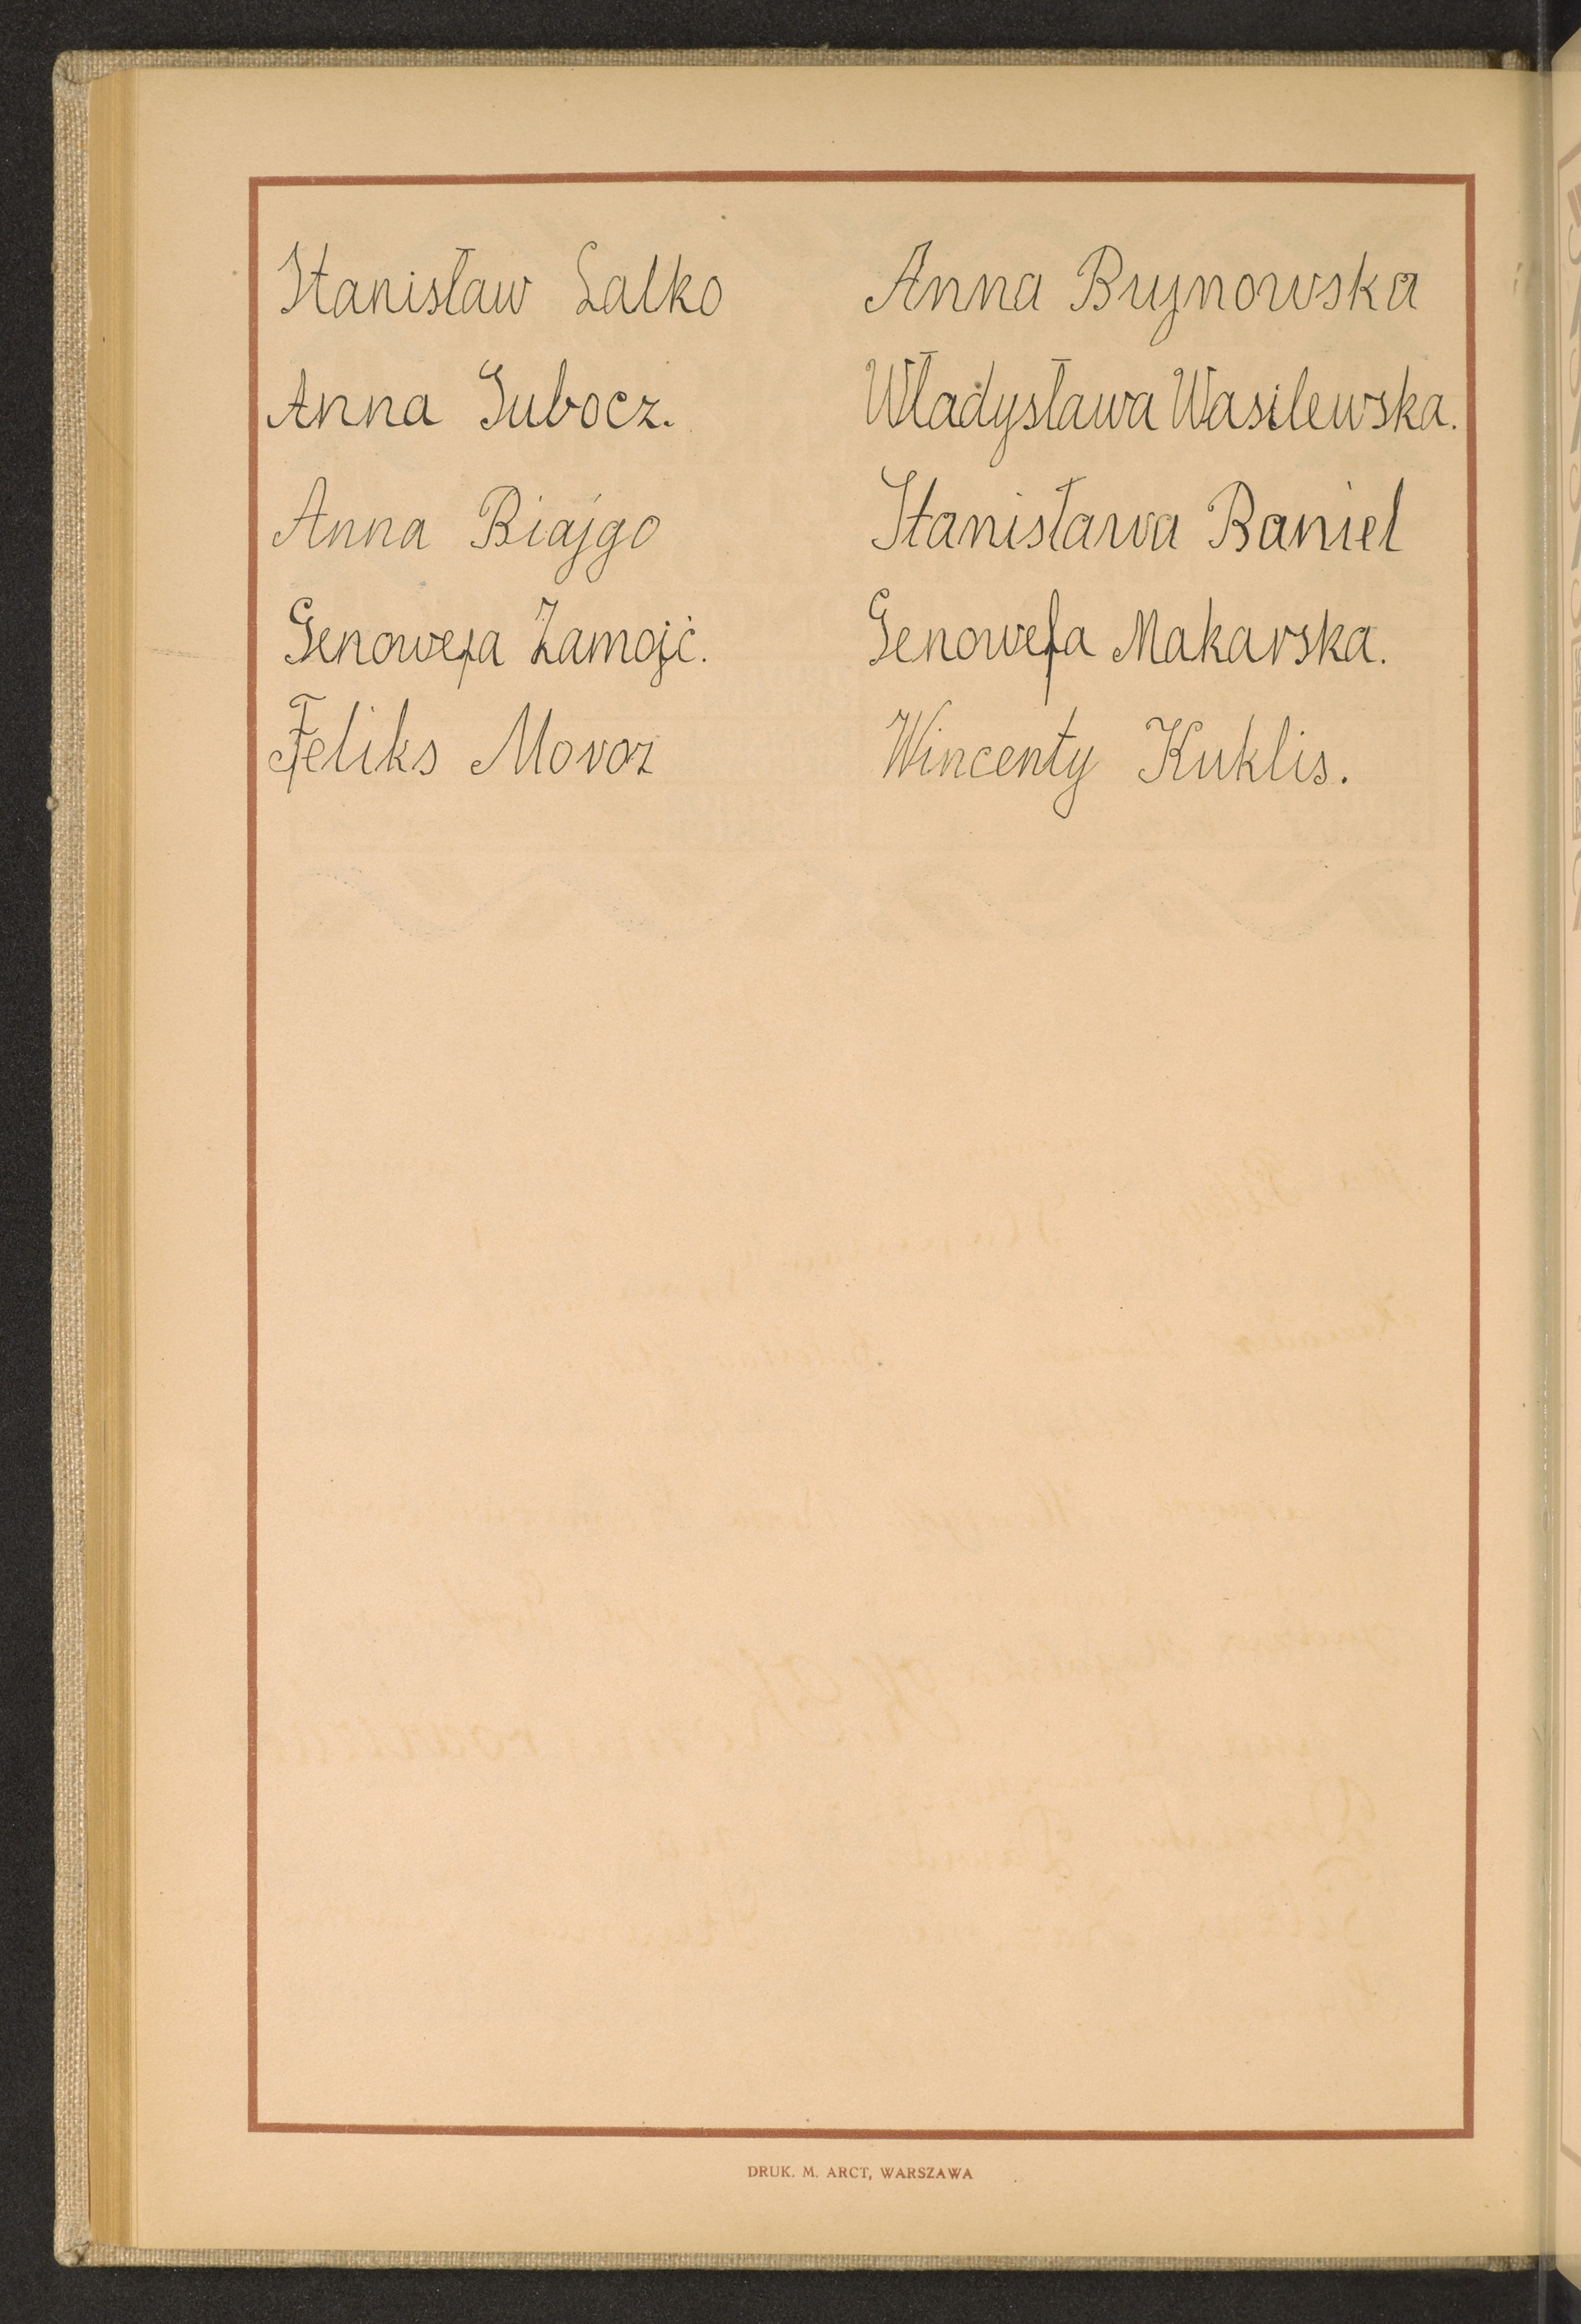 Stanisław Lalko
Anna Gubocz.
Anna Biajgo
Genowefa Zamojć.
Feliks Moroz
Anna Bujnowska
Władysława Wasilewska.
Stanisława Baniel
Genowefa Makarska.
Wincenty Kuklis.
DRUK. M. ARCT, WARSZAWA